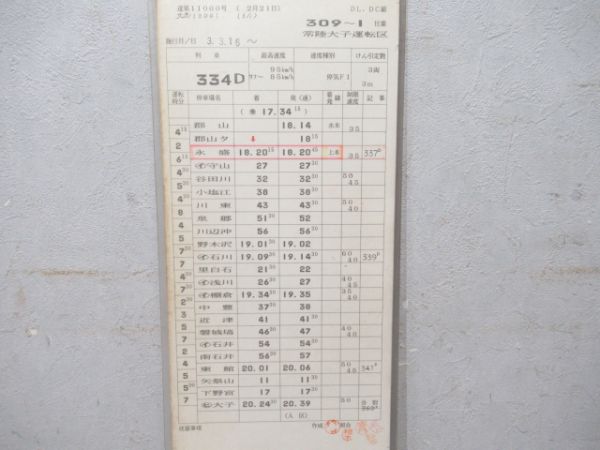 達第11000号 (2月21日) DL.DC組
309～1 日業
常陸大子運転区
施行月/日 3.3.16～
列車 最高速度 速度種別 けん引定数
334D 95km/h 85km/h 停気F1 3両
運転時分 停車場名 着 発(通) 着発線 制限速度 記事
(乗 17.34 15)
郡山 18.14 35
4 15 郡山タ ↓ 18 15
2 永盛 18.20 15 18.20 45 上本 35 337D
6 15 ㋑守山 27 27 30
5 谷田川 32 32 30 50 45
小塩江 38 38 30
川東 43 43 30 50 40
8 泉郷 51 30 52
川辺沖 56 56 30
5 野木沢 19.01 30 19.02
7 30 ㋑石川 19.09 30 19.14 30 60 40 339D
7 里白石 21 22
㋑浅川 26 27 30 40 45
7 30 ㋑棚倉 19.34 30 19.35 35 40
2 中豊 37 30 38
近津 41 41 30
5 磐城塙 46 30 47 40 40
7 ㋑石井 54 54 30
2 南石井 56 30 57
4 東館 20.01 20.06 50 45
5 30 矢祭山 11 11 30
5 30 下野宮 17 17 30
7 常大子 20.24 30 20.39 50
(入区)
注意事項 作成 照合